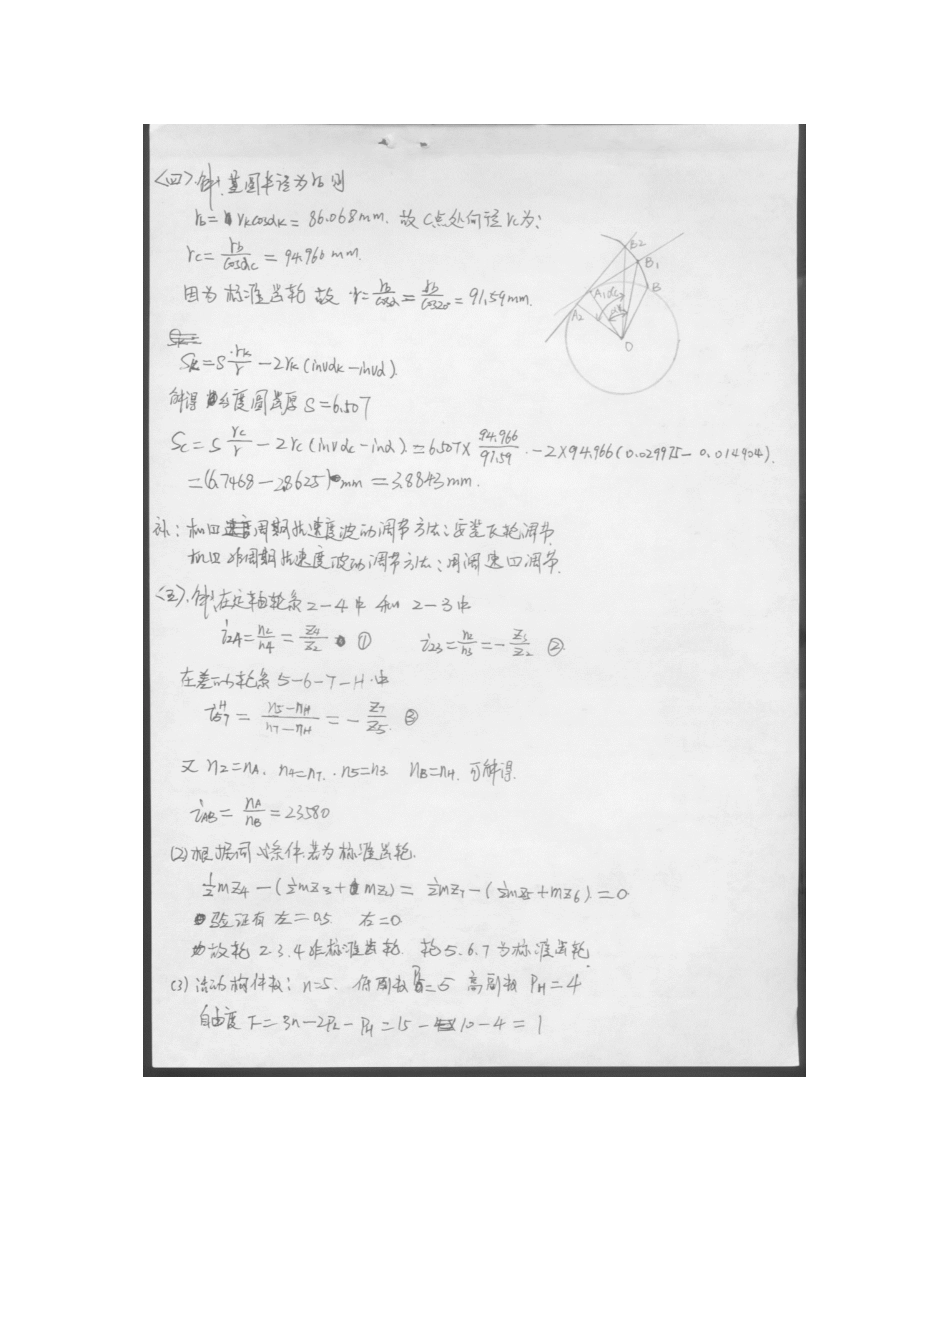 <四>.解:基圆半径为rb则
rb=rkcosαk=86.068mm. 故C点处向径rc为:
rc=rb/cosαc=94.966mm.
因为标准齿轮 故 r=rb/cosα=rb/cos20°=91.59mm.
B2
B1
B
A1
αc
A2
O
Sk=S·rk/r-2rk(invαk-invα).
解得分度圆齿厚S=6.507
Sc=S rc/r-2rc(invαc-invα)=6.507×94.966/91.59-2×94.966(0.029975-0.014904).
=(6.7468-2.8625)mm=3.8843mm.
补:机器周期性速度波动调节方法:安装飞轮调节
机器非周期性速度波动调节方法:用调速器调节.
<五>.解:在定轴轮系2-4中和2-3中
i24=n2/n4=Z4/Z2 ① i23=n2/n3=-Z3/Z2 ②
在差动轮系5-6-7-H中
i57^H=(n5-nH)/(n7-nH)=-Z7/Z5 ③
又 n2=nA. n4=n7. n5=n3 nB=nH. 可解得.
iAB=nA/nB=23580
(2)根据同心条件.若为标准齿轮.
½mZ4-(½mZ3+mZ2)=½mZ7-(½mZ5+mZ6)=0
验证有 左=0.5 右=0
故轮2.3.4非标准齿轮. 轮5.6.7为标准齿轮.
(3)活动构件数:n=5. 低副数PL=5 高副数PH=4
自由度F=3n-2PL-PH=15-10-4=1